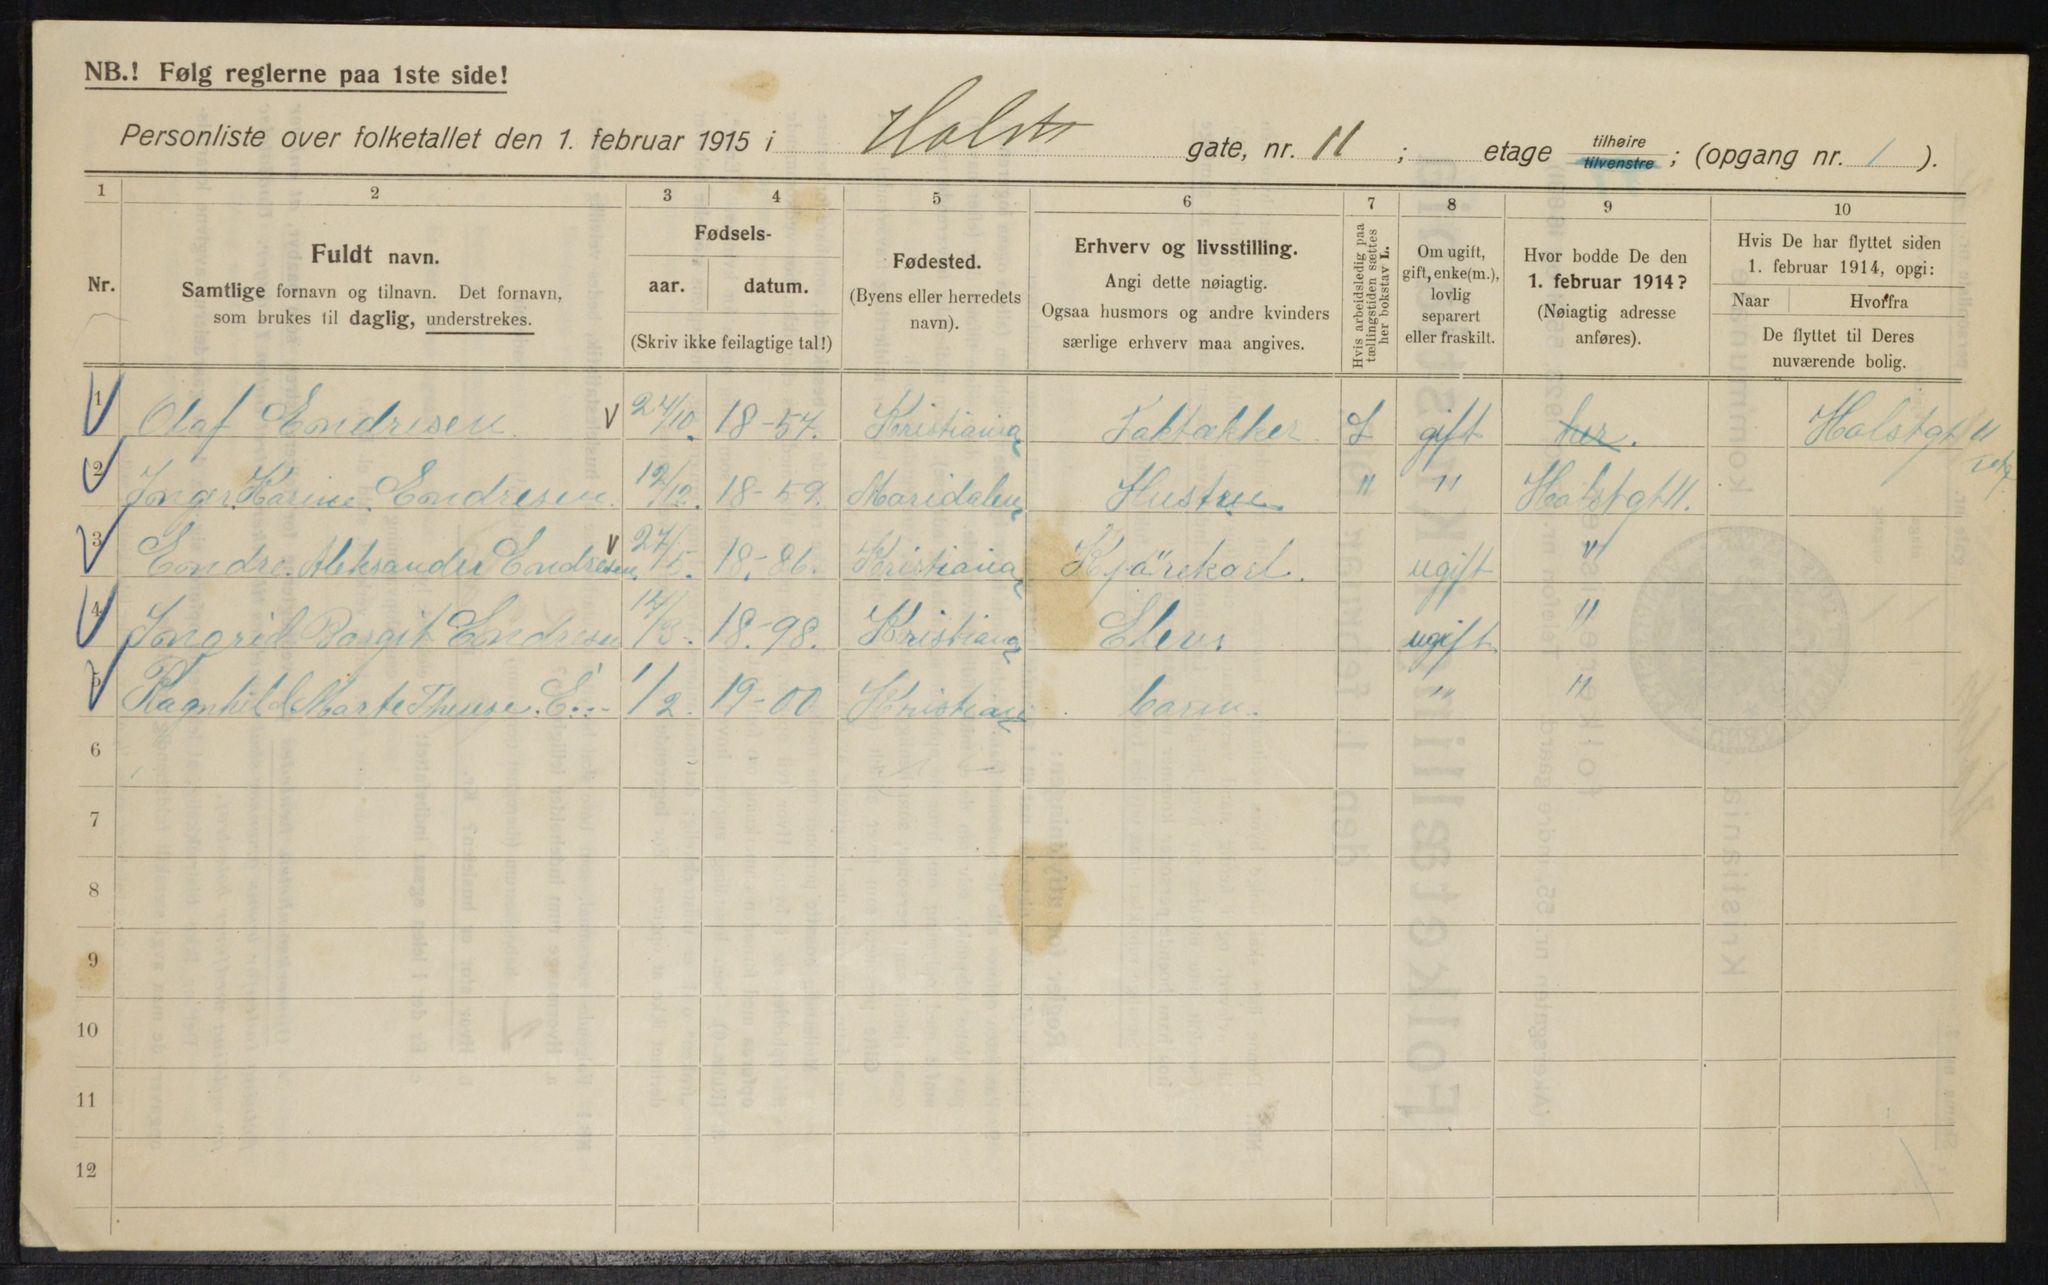 NB.! Følg reglerne paa 1ste side!
Personliste over folketallet den 1. februar 1915 i Holsts gate, nr. 11 ; etage tilhøire tilvenstre ; (opgang nr. 1 ).
1 2 3 4 5 6 7 8 9 10
Nr.
Fuldt navn.
Samtlige fornavn og tilnavn. Det fornavn,
som brukes til daglig, understrekes.
Fødsels-
aar. datum.
(Skriv ikke feilagtige tal!)
Fødested.
(Byens eller herredets
navn).
Erhverv og livsstilling.
Angi dette nøiagtig.
Ogsaa husmors og andre kvinders
særlige erhverv maa angives.
Hvis arbeidsledig paa
tællingstiden sættes
her bokstav L.
Om ugift,
gift, enke(m.),
lovlig
separert
eller fraskilt.
Hvor bodde De den
1. februar 1914?
(Nøiagtig adresse
anføres).
Hvis De har flyttet siden
1. februar 1914, opgi:
Naar Hvorfra
De flyttet til Deres
nuværende bolig.
1 Olaf Endresen 24/10 18-57. Kristiania Taktækker L gift her. Holstgt 11
2 Inger Karine Endresen 12/12 18-59. Maridalen Hustru " " Holstgt 11.
3 Endre Aleksander Endresen 27/5 18-86. Kristiania Kjörekarl. ugift "
4 Ingrid Borgit Endresen 12/3 18-98. Kristiania Elev. ugift "
5 Ragnhild Marte Therese E... 1/2 19-00 Kristiania barn. " "
6
7
8
9
10
11
12